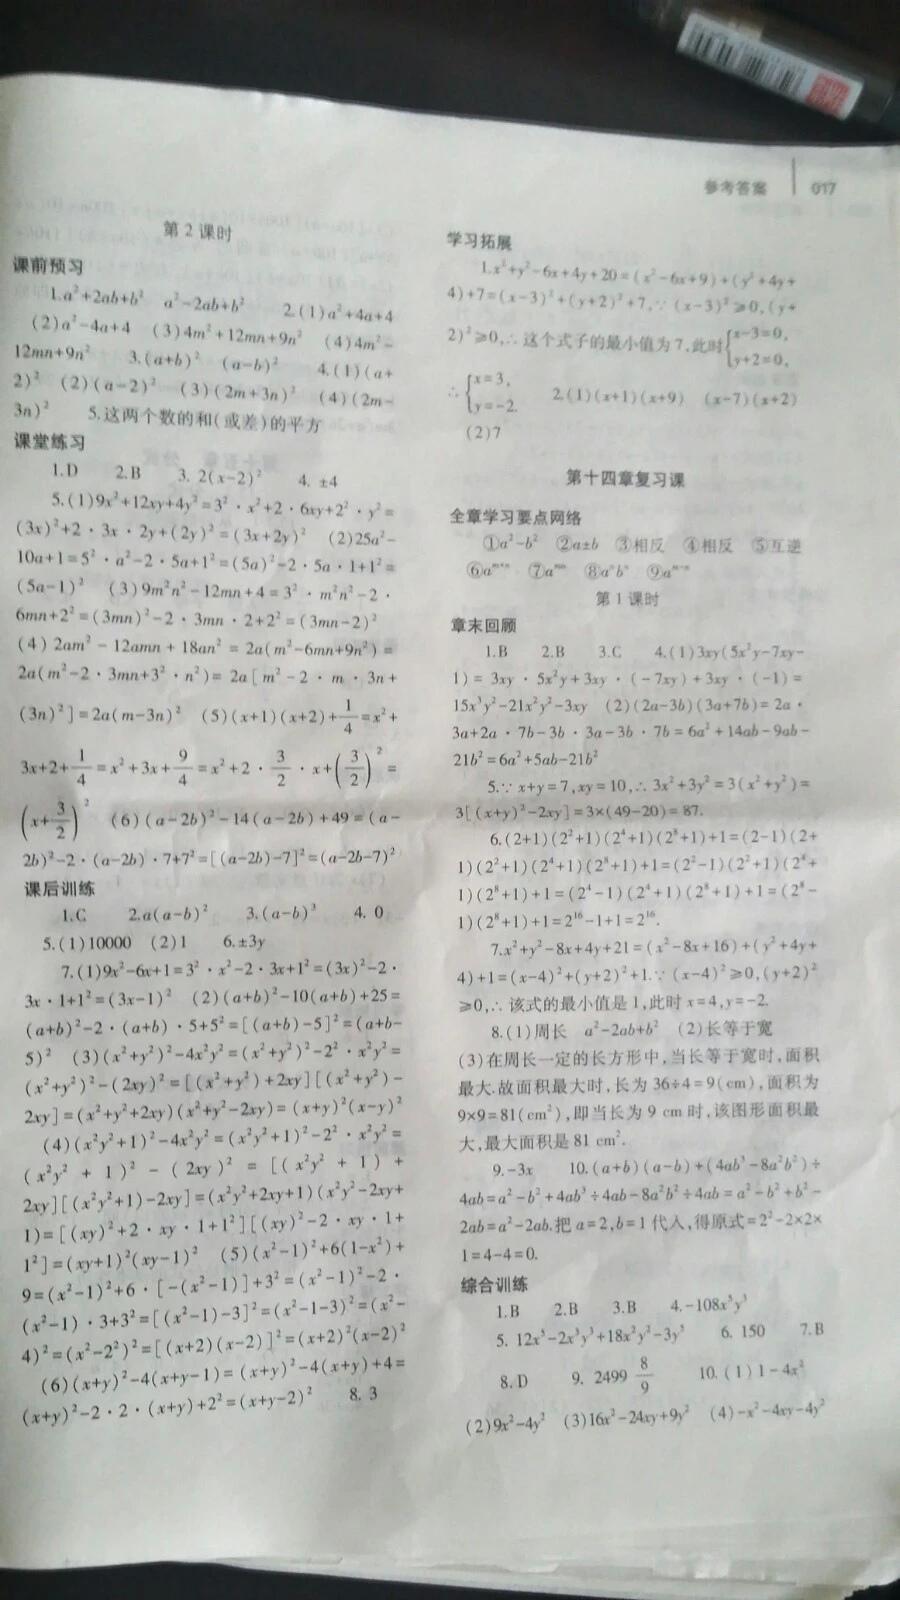 参考答案 017
第 2 课时
课前预习
1.a²+2ab+b² a²-2ab+b² 2.(1)a²+4a+4
(2)a²-4a+4 (3)4m²+12mn+9n² (4)4m²-
12mn+9n² 3.(a+b)² (a-b)² 4.(1)(a+
2)² (2)(a-2)² (3)(2m+3n)² (4)(2m-
3n)² 5.这两个数的和(或差)的平方
课堂练习
1.D 2.B 3. 2(x-2)² 4. ±4
5.(1)9x²+12xy+4y²=3²·x²+2·6xy+2²·y²=
(3x)²+2·3x·2y+(2y)²=(3x+2y)² (2)25a²-
10a+1=5²·a²-2·5a+1²=(5a)²-2·5a·1+1²=
(5a-1)² (3)9m²n²-12mn+4=3²·m²n²-2·
6mn+2²=(3mn)²-2·3mn·2+2²=(3mn-2)²
(4) 2am²-12amn+18an²=2a(m²-6mn+9n²)=
2a(m²-2·3mn+3²·n²)=2a[m²-2·m·3n+
(3n)²]=2a(m-3n)² (5)(x+1)(x+2)+1/4=x²+
3x+2+1/4=x²+3x+9/4=x²+2·3/2·x+(3/2)²=
(x+3/2)² (6)(a-2b)²-14(a-2b)+49=(a-
2b)²-2·(a-2b)·7+7²=[(a-2b)-7]²=(a-2b-7)²
课后训练
1.C 2.a(a-b)² 3.(a-b)³ 4. 0
5.(1)10000 (2)1 6.±3y
7.(1)9x²-6x+1=3²·x²-2·3x+1²=(3x)²-2·
3x·1+1²=(3x-1)² (2)(a+b)²-10(a+b)+25=
(a+b)²-2·(a+b)·5+5²=[(a+b)-5]²=(a+b-
5)² (3)(x²+y²)²-4x²y²=(x²+y²)²-2²·x²y²=
(x²+y²)²-(2xy)²=[(x²+y²)+2xy][(x²+y²)-
2xy]=(x²+y²+2xy)(x²+y²-2xy)=(x+y)²(x-y)²
(4)(x²y²+1)²-4x²y²=(x²y²+1)²-2²·x²y²=
(x²y²+1)²-(2xy)²=[(x²y²+1)+
2xy][(x²y²+1)-2xy]=(x²y²+2xy+1)(x²y²-2xy+
1)=[(xy)²+2·xy·1+1²][(xy)²-2·xy·1+
1²]=(xy+1)²(xy-1)² (5)(x²-1)²+6(1-x²)+
9=(x²-1)²+6·[-(x²-1)]+3²=(x²-1)²-2·
(x²-1)·3+3²=[(x²-1)-3]²=(x²-1-3)²=(x²-
4)²=(x²-2²)²=[(x+2)(x-2)]²=(x+2)²(x-2)²
(6)(x+y)²-4(x+y-1)=(x+y)²-4(x+y)+4=
(x+y)²-2·2·(x+y)+2²=(x+y-2)² 8. 3
学习拓展
1.x²+y²-6x+4y+20=(x²-6x+9)+(y²+4y+
4)+7=(x-3)²+(y+2)²+7,∵(x-3)²≥0,(y+
2)²≥0,∴这个式子的最小值为7,此时{x-3=0, y+2=0,
∴{x=3, y=-2. 2.(1)(x+1)(x+9) (x-7)(x+2)
(2)7
第十四章复习课
全章学习要点网络
①a²-b² ②a±b ③相反 ④相反 ⑤互逆
⑥aᵐ⁺ⁿ ⑦aᵐⁿ ⑧aⁿbⁿ ⑨aᵐ⁻ⁿ
第 1 课时
章末回顾
1.B 2.B 3.C 4.(1)3xy(5x²y-7xy-
1)=3xy·5x²y+3xy·(-7xy)+3xy·(-1)=
15x³y²-21x²y²-3xy (2)(2a-3b)(3a+7b)=2a·
3a+2a·7b-3b·3a-3b·7b=6a²+14ab-9ab-
21b²=6a²+5ab-21b²
5.∵x+y=7,xy=10,∴3x²+3y²=3(x²+y²)=
3[(x+y)²-2xy]=3×(49-20)=87.
6.(2+1)(2²+1)(2⁴+1)(2⁸+1)+1=(2-1)(2+
1)(2²+1)(2⁴+1)(2⁸+1)+1=(2²-1)(2²+1)(2⁴+
1)(2⁸+1)+1=(2⁴-1)(2⁴+1)(2⁸+1)+1=(2⁸-
1)(2⁸+1)+1=2¹⁶-1+1=2¹⁶.
7.x²+y²-8x+4y+21=(x²-8x+16)+(y²+4y+
4)+1=(x-4)²+(y+2)²+1.∵(x-4)²≥0,(y+2)²
≥0,∴该式的最小值是1,此时x=4,y=-2.
8.(1)周长 a²-2ab+b² (2)长等于宽
(3)在周长一定的长方形中,当长等于宽时,面积
最大.故面积最大时,长为36÷4=9(cm),面积为
9×9=81(cm²),即当长为9 cm时,该图形面积最
大,最大面积是81 cm².
9.-3x 10.(a+b)(a-b)+(4ab³-8a²b²)÷
4ab=a²-b²+4ab³÷4ab-8a²b²÷4ab=a²-b²+b²-
2ab=a²-2ab.把a=2,b=1代入,得原式=2²-2×2×
1=4-4=0.
综合训练
1.B 2.B 3.B 4.-108x⁵y³
5. 12x⁵-2x³y³+18x²y²-3y⁵ 6. 150 7.B
8.D 9. 2499 8/9 10.(1)1-4x²
(2)9x²-4y² (3)16x²-24xy+9y² (4)-x²-4xy-4y²